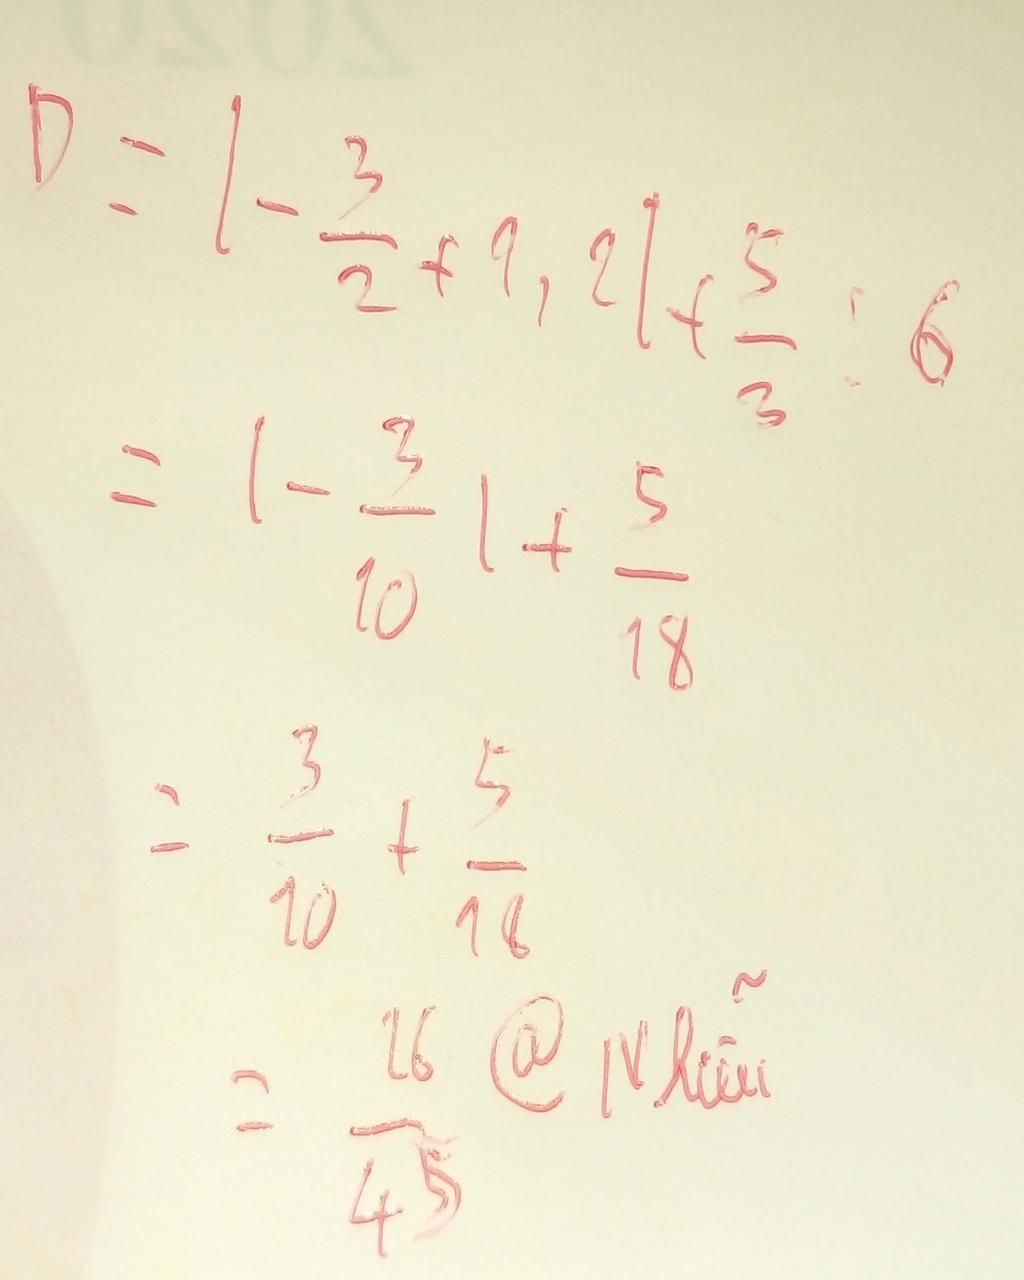 D = |-3/2 + 1,2| + 5/3 : 6
= |-3/10| + 5/18
= 3/10 + 5/18
= 26/45 @